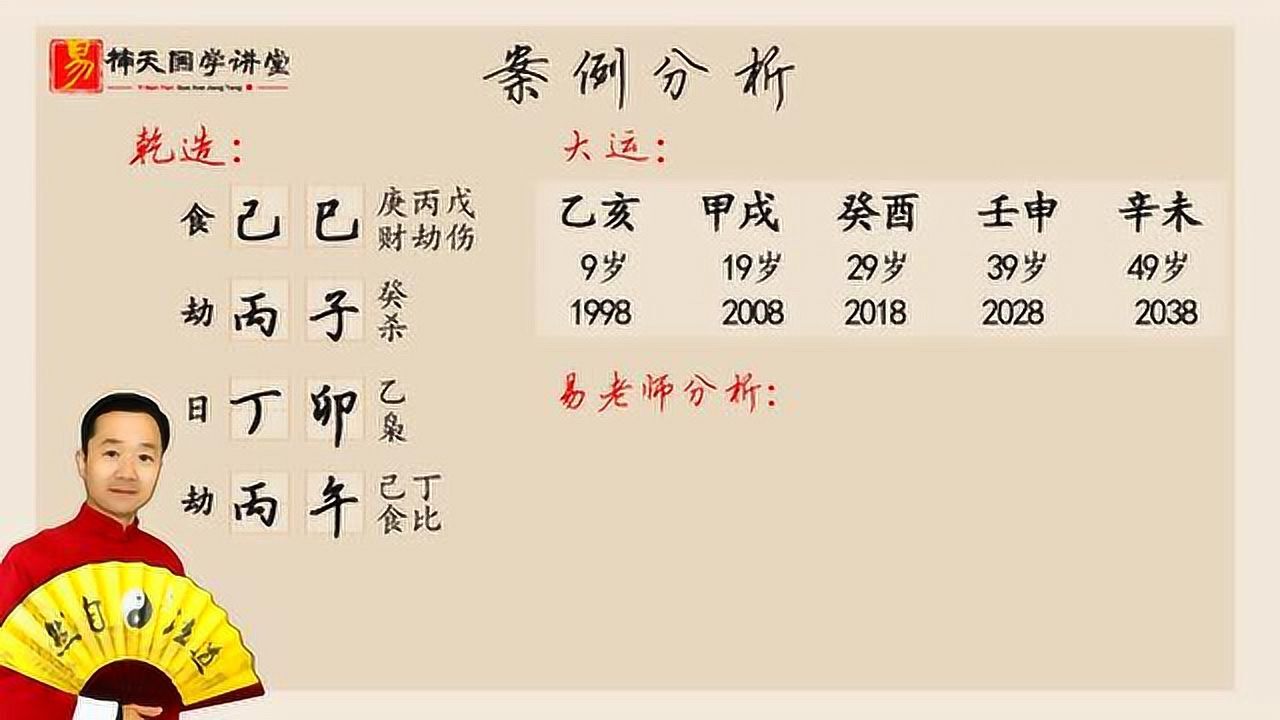 易
神天国学讲堂
案例分析
乾造：
食 己 巳 庚丙戊
财劫伤
劫 丙 子 癸
杀
日 丁 卯 乙
枭
劫 丙 午 己丁
食比
大运：
乙亥 甲戌 癸酉 壬申 辛未
9岁 19岁 29岁 39岁 49岁
1998 2008 2018 2028 2038
易老师分析：
然自法道